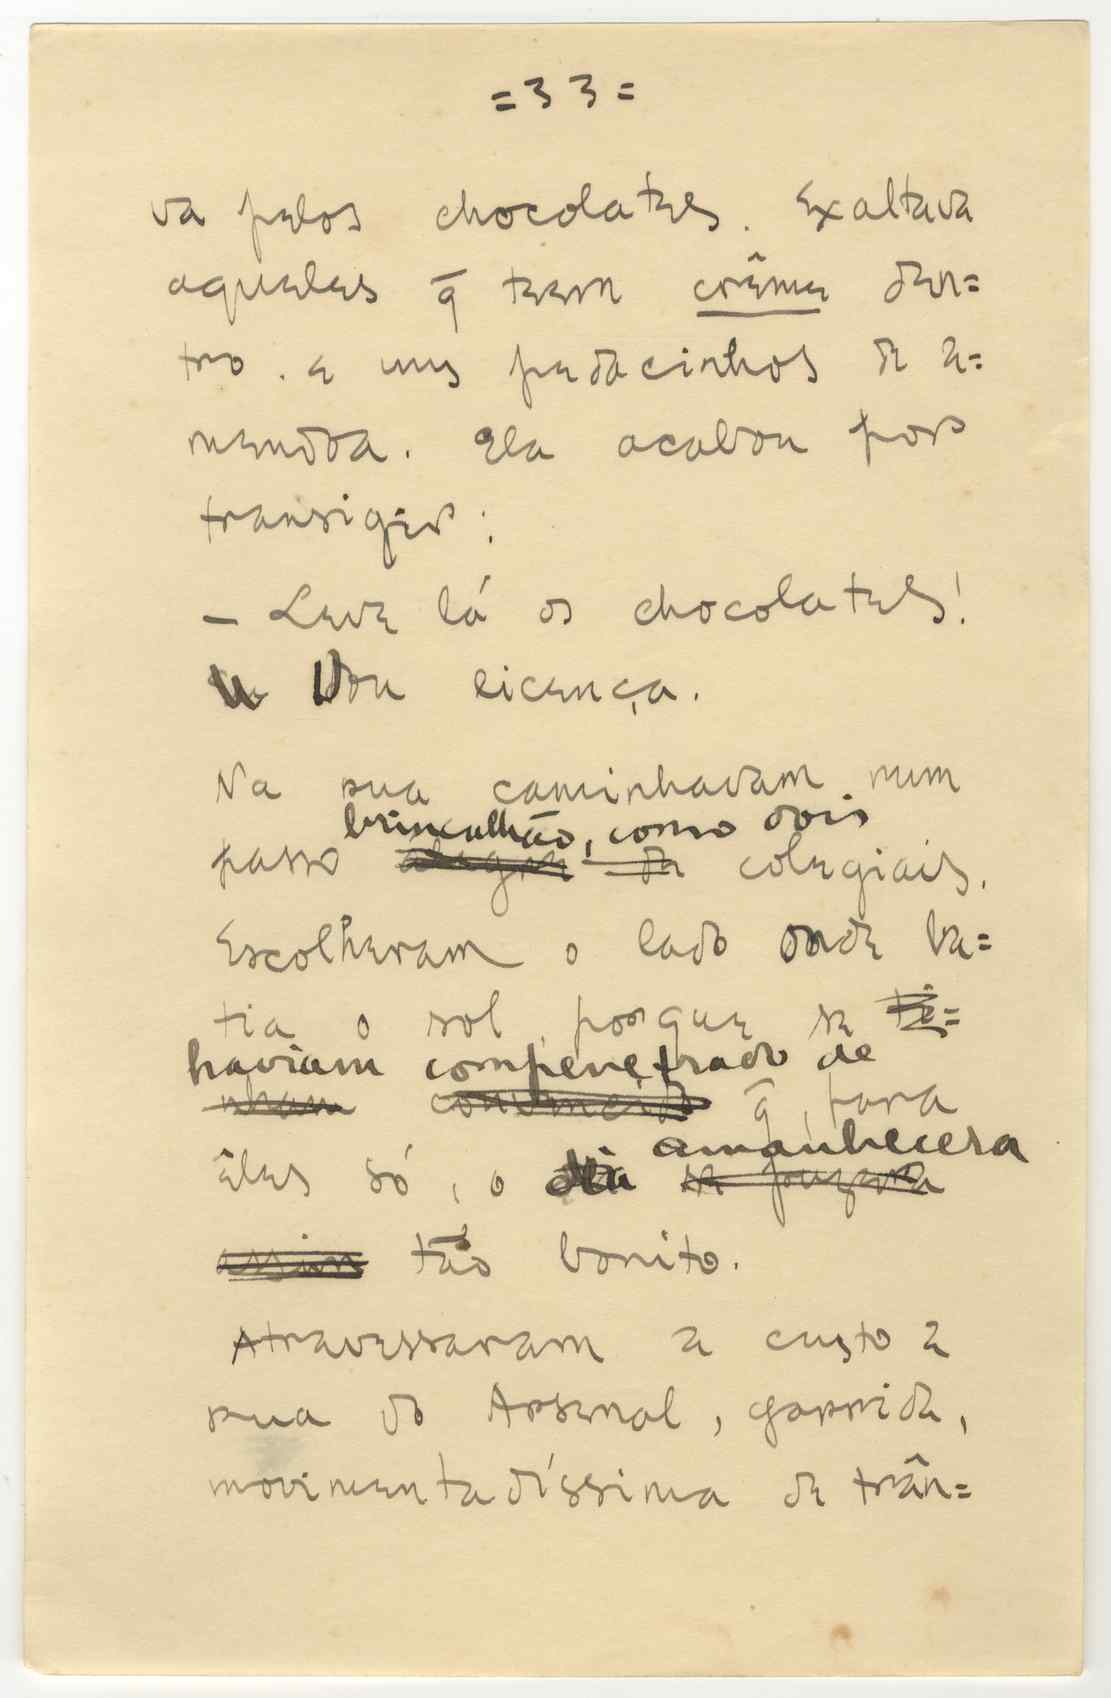 =33=
va pelos chocolates. Exaltava
aqueles q̄ teem crême den=
tro . e uns pedacinhos de a=
mendoa. Ela acabou por
transigir :
– Leve lá os chocolates!
Dou licença.
Na rua caminhavam num
brincalhão, como dois
passo alegre de colegiais.
Escolheram o lado onde ba=
tia o sol, porque se ti=
haviam compenetrado de
nham convencido q̄, para
êles só, o dia amanhecera
se puzera
assim tão bonito.
Atravessaram a custo a
rua do Arsenal, garrida,
movimentadíssima de trân=